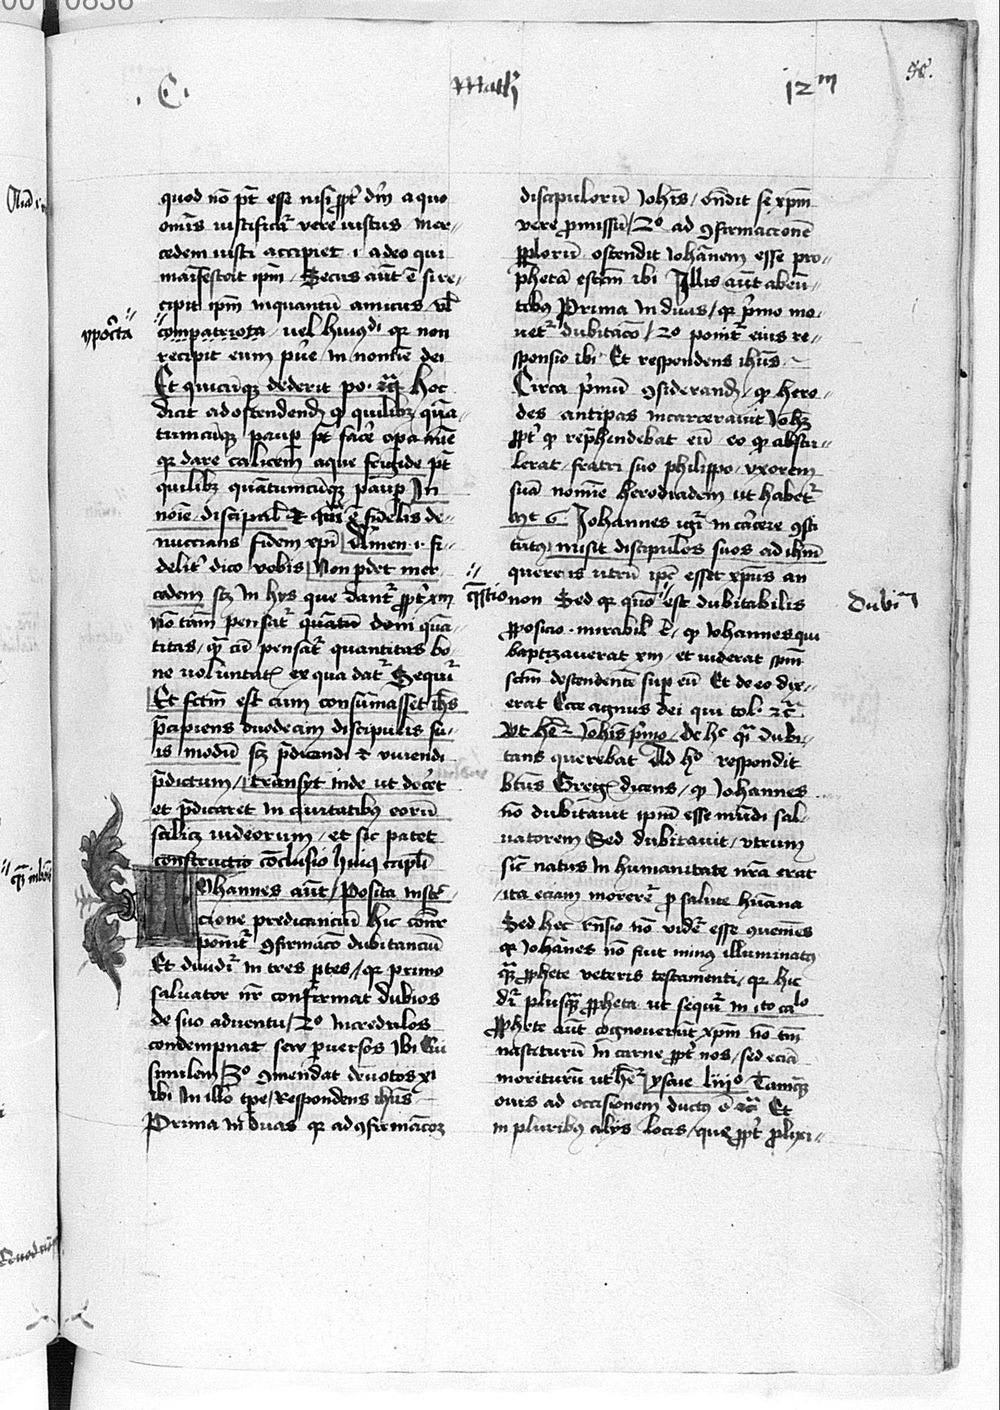 C.
Math
12m
98.
quod no pt esse nisi ppt dm a quo
omis iustificat vere iustus mer//
cedem iusti accipiet .i. a deo qui
manifestavit ipm Secus aut e si re//
cipit ipm inquantu amicus vl
compatriota vel huiusdi qr non
recipit eum pure in nomie dei
Et quicuq dederit po. zc hoc
dicit ad ostendend q quilibz qua//
tumcuq paup pt face opa mie
qr dare calicem aque frigide pt
quilibz quatumcuq paup In
noie discipuli et qui e fidelis de//
nuccians fidem xpi Amen .i. fi//
delit dico vobis Non perdet mer
cedem scz in hys que dant ppt xm
no tam pensat quatu doni qua//
titas qa cu pensat quantitas bo//
ne voluntatis ex qua dat Sequi
Et fctm est cum consumasset ihs
precipiens duodecim discipulis su//
is modu scz predicandi et vivendi
predictum transyt inde ut doceret
et predicaret in civitatibus eoru
scilicz iudeorum et sic patet
constructio conclusio huius cripli
Iohannes aut Posita instruc
cione predicanciu hic conr
ponit confirmaco dubitanciu
Et dividi in tres partes qr primo
salvator nr confirmat dubios
de suo adventu 2o incredulos
condempnat seu perversos ibi Cui
similem 3o comendat devotos xi
ibi In illo tpe Respondens ihus
Prima in duas qr ad confirmacoz
discipuloru Iohis ondit se xpm
vere promissu 2o ad confirmacione
pploru ostendit Iohannem esse pro//
pheta estem ibi Illis aut abeu//
tibus Prima in duas qr primo mo//
vet dubitaco 2o ponit eius re//
sponsio ibi Et respondens ihus
Circa primu considerand q hero//
des antipas incarceravit Iohz
ppt q rephendebat eu eo q abstu//
lerat fratri suo philippo uxorem
sua nomie herodiadem ut habet
mt 6 Iohannes igr in carcere consti
tutus misit discipulos suos ad ihm
querens utru ipe esset xpus an
non Sed qr questio est dubitabilis
pposicio mirabil e q Iohannes qui
baptizaverat xm et viderat spm
sctm descendente sup eu Et de eo dix//
erat Ecce agnus dei qui tol. zc
Ut he Iohis primo de hc qi dubi//
tans querebat Ad hc respondit
btus Greg dicens q Iohannes
no dubitavit ipm esse mudi sal//
vatorem Sed dubitavit utrum
sic natus in humanitate nra erat
ita eciam morere p salute humana
Sed hec rnsio no vide esse conveniens
qr Iohannes no fuit minus illuminatus
quam pphete veteris testamenti qr hic
dr plusquam ppheta ut sequi in isto calo
Pphete aut cognoverut xpm no tm
nasciturum in carne ppt nos sed ecia
morituru ut he ysaie liijo Tamquam
ovis ad occisionem ductus e zc Et
in pluribus alys locis que ppt plixi//
ypocrita
questio
Dubium